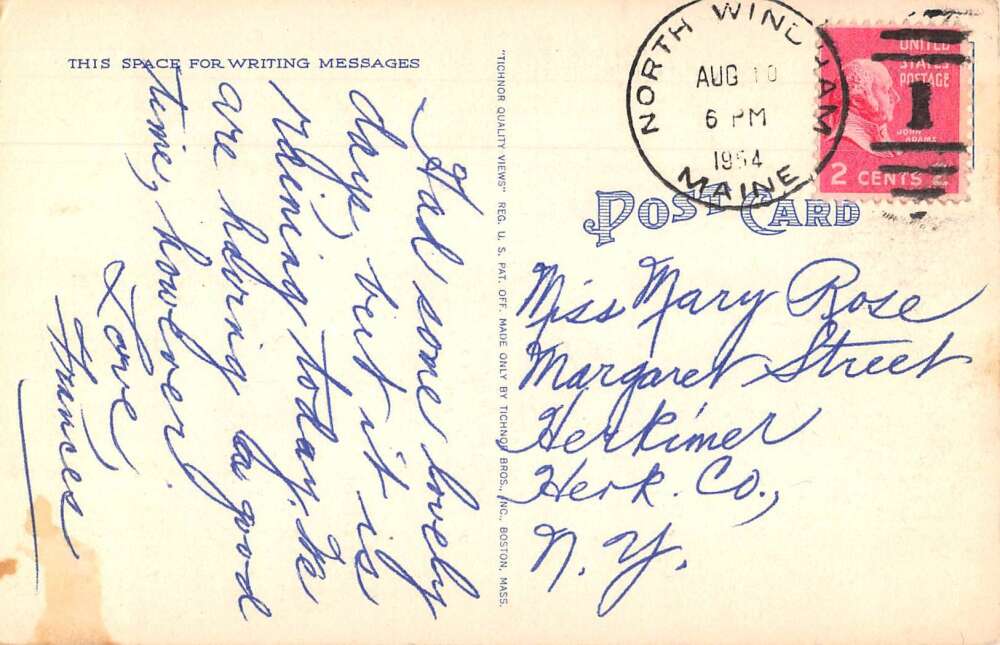 THIS SPACE FOR WRITING MESSAGES
Had some lovely
days, but it is
raining today. We
are having a good
time, however.
Love
Frances
"TICHNOR QUALITY VIEWS" REG. U. S. PAT. OFF. MADE ONLY BY TICHNOR BROS., INC., BOSTON, MASS.
NORTH WINDHAM
AUG 10
6 PM
1954
MAINE
UNITED
STATES
POSTAGE
1
JOHN
ADAMS
2 CENTS 2
POST CARD
Miss Mary Rose
Margaret Street
Herkimer
Herk. Co.,
N. Y.